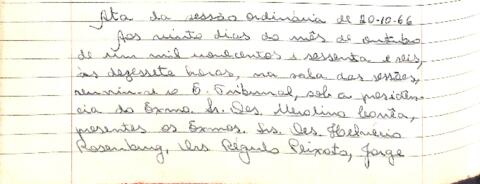 Ata da sessão ordinária de 20-10-66
Aos vinte dias do mês de outubro
de um mil novecentos e sessenta e seis,
às dezessete horas, na sala das sessões,
reuniu-se o E. Tribunal, sob a presidên-
cia do Exmo. Sr. Des. Merolino Corrêa,
presentes os Exmos. Srs. Des
Rosenburg, Drs Régulo Peixoto, Jorge